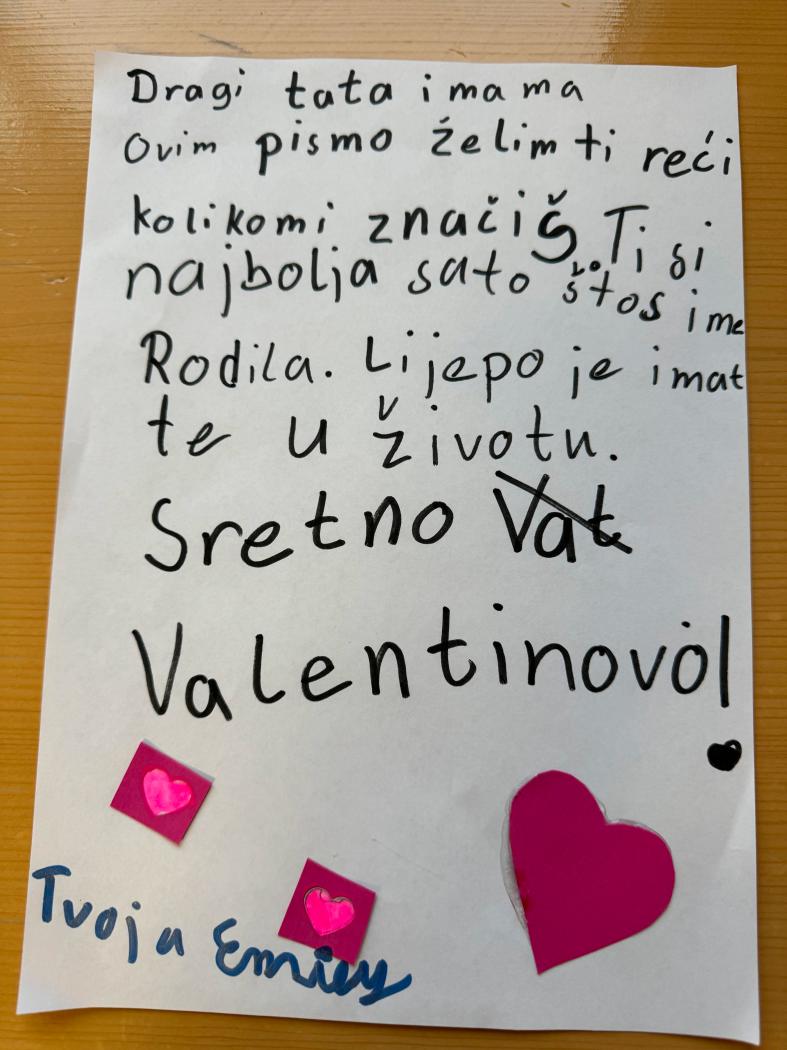 Dragi tata i mama
Ovim pismo želim ti reći
kolikomi značiš. Ti si
najbolja sato štos ime
Rodila. Lijepo je imat
te u životu.
Sretno Vat
Valentinovo!
Tvoja Emily